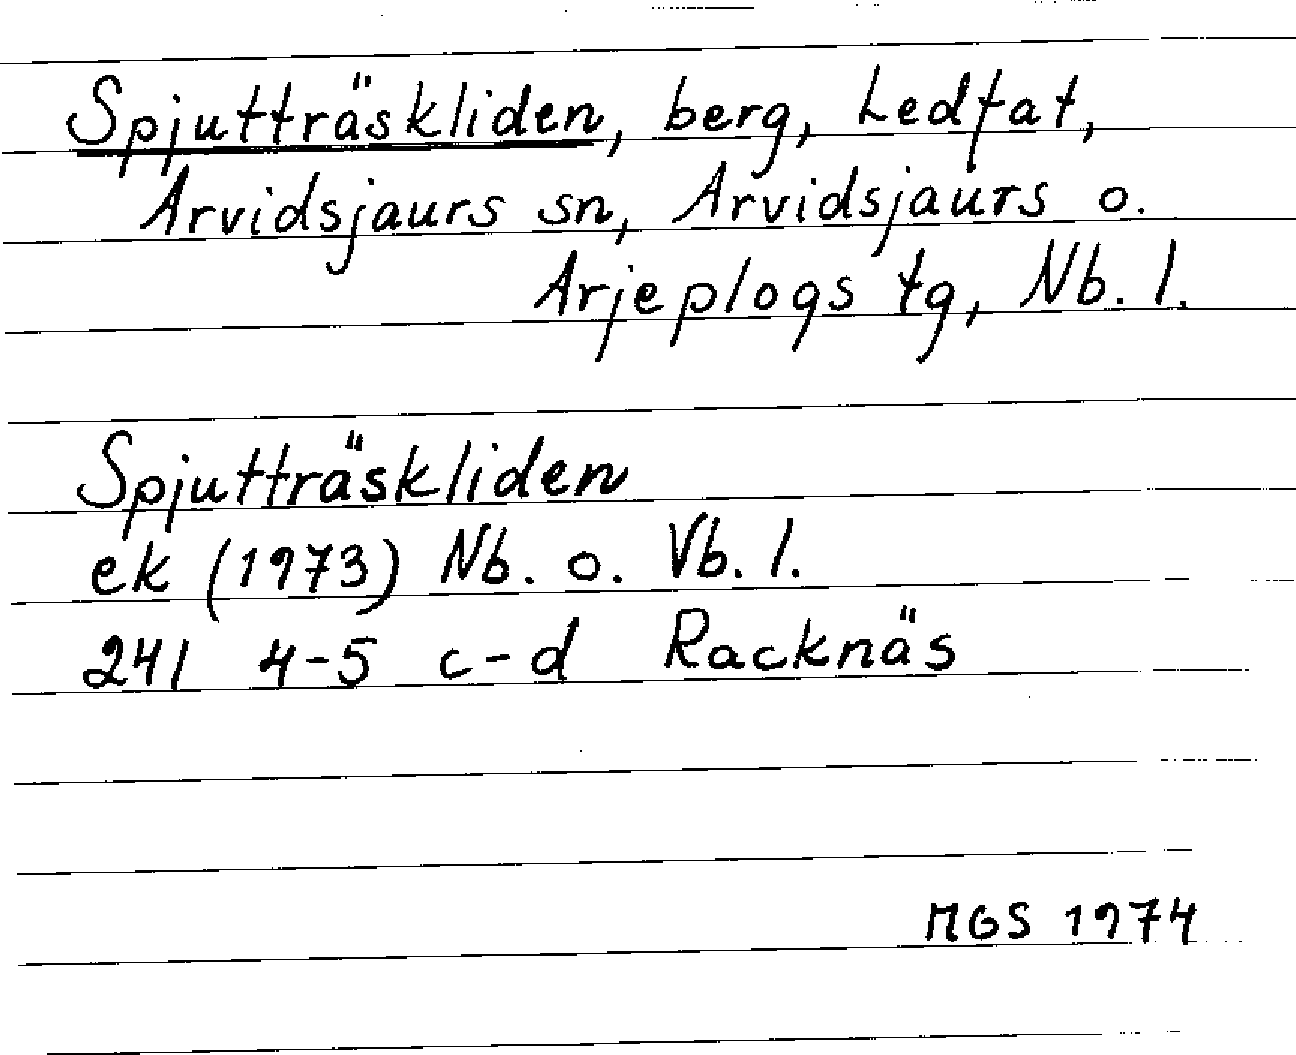 Spjutträskliden, berg, Ledfat,
Arvidsjaurs sn, Arvidsjaurs o.
Arjeplogs tg, Nb. l.
Spjutträskliden
ek (1973) Nb. o. Vb. l.
241 4-5 c-d Racknäs
MGS 1974